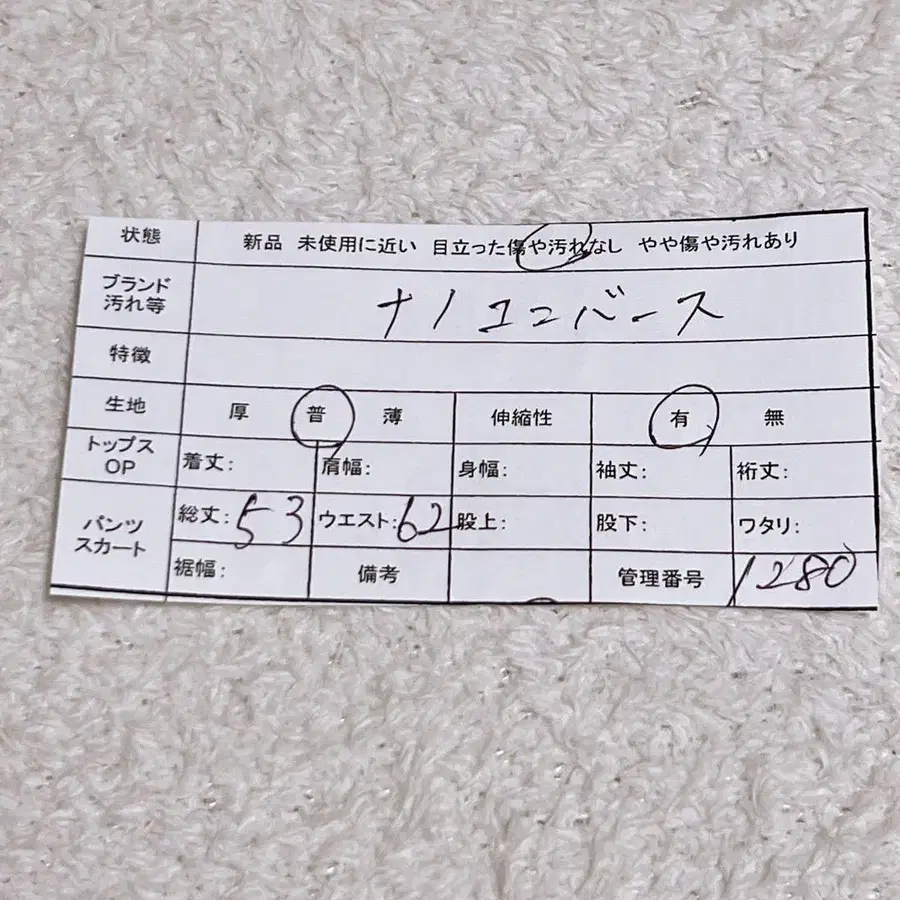 状態 新品 未使用に近い 目立った傷や汚れなし やや傷や汚れあり
ブランド
汚れ等
ナノユニバース
特徴
生地 厚 普 薄 伸縮性 有 無
トップス
OP
着丈: 肩幅: 身幅: 袖丈: 裄丈:
パンツ
スカート
総丈:53 ウエスト:62 股上: 股下: ワタリ:
裾幅: 備考 管理番号 1280